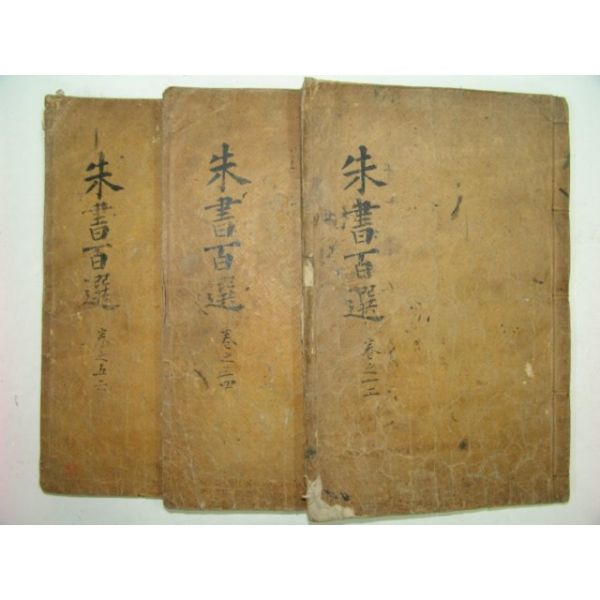 朱書百選
卷之一二
朱書百選
卷之三四
朱書百選
卷之五六